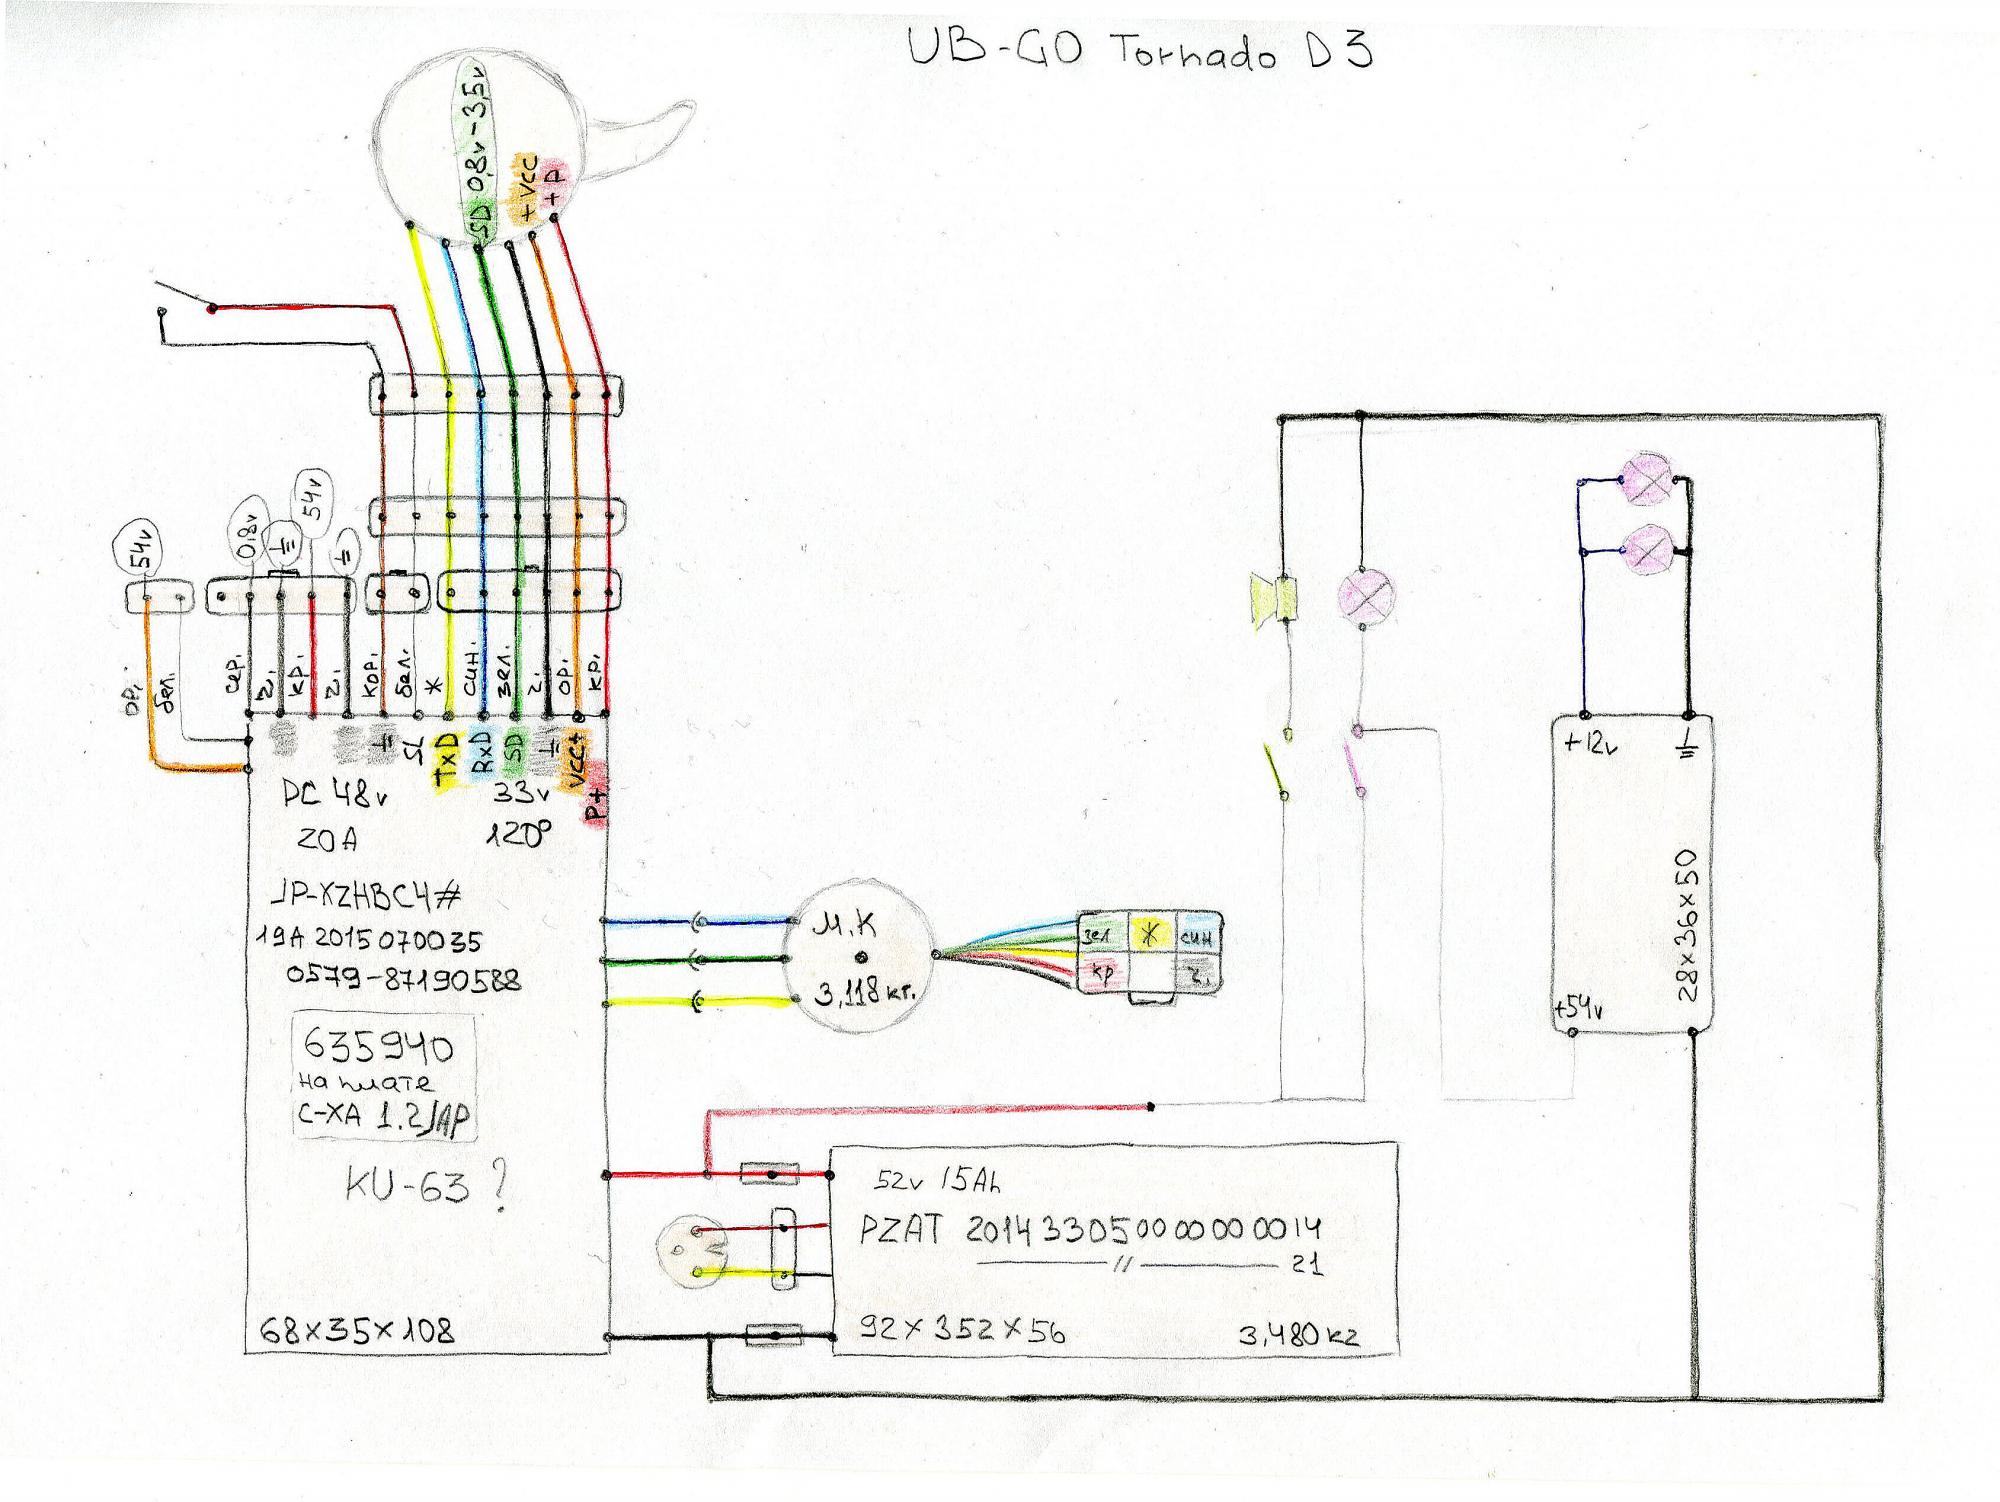 UB-GO Tornado D3
SD 0,8v-3,5v
+VCC
+P
54v
0,8v
54v
ор.
бел.
сер.
ч.
кр.
ч.
кор.
бел.
ж
син.
зел.
ч.
ор.
кр.
SL
TxD
RxD
SD
VCC+
P+
DC 48v
20A
33v
120°
JP-XZHBC4#
19A 2015070035
0579-87190588
635940
на плате
С-ХА 1.2JAP
KU-63 ?
68x35x108
М.К
3,118кг.
зел
ж
син
кр
ч.
+12v
28x36x50
+54v
52v 15Ah
PZAT 2014330500000000014
—//— 21
92x352x56
3,480кг